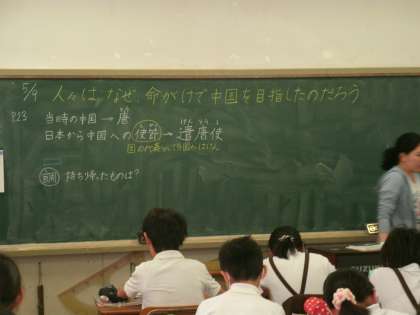 5/9 人々は、なぜ、命がけで中国を目指したのだろう
P23 当時の中国→唐
日本から中国への使節→遣唐使
けん とう し
国の代表として外国へはけん
持ち帰ったものは?